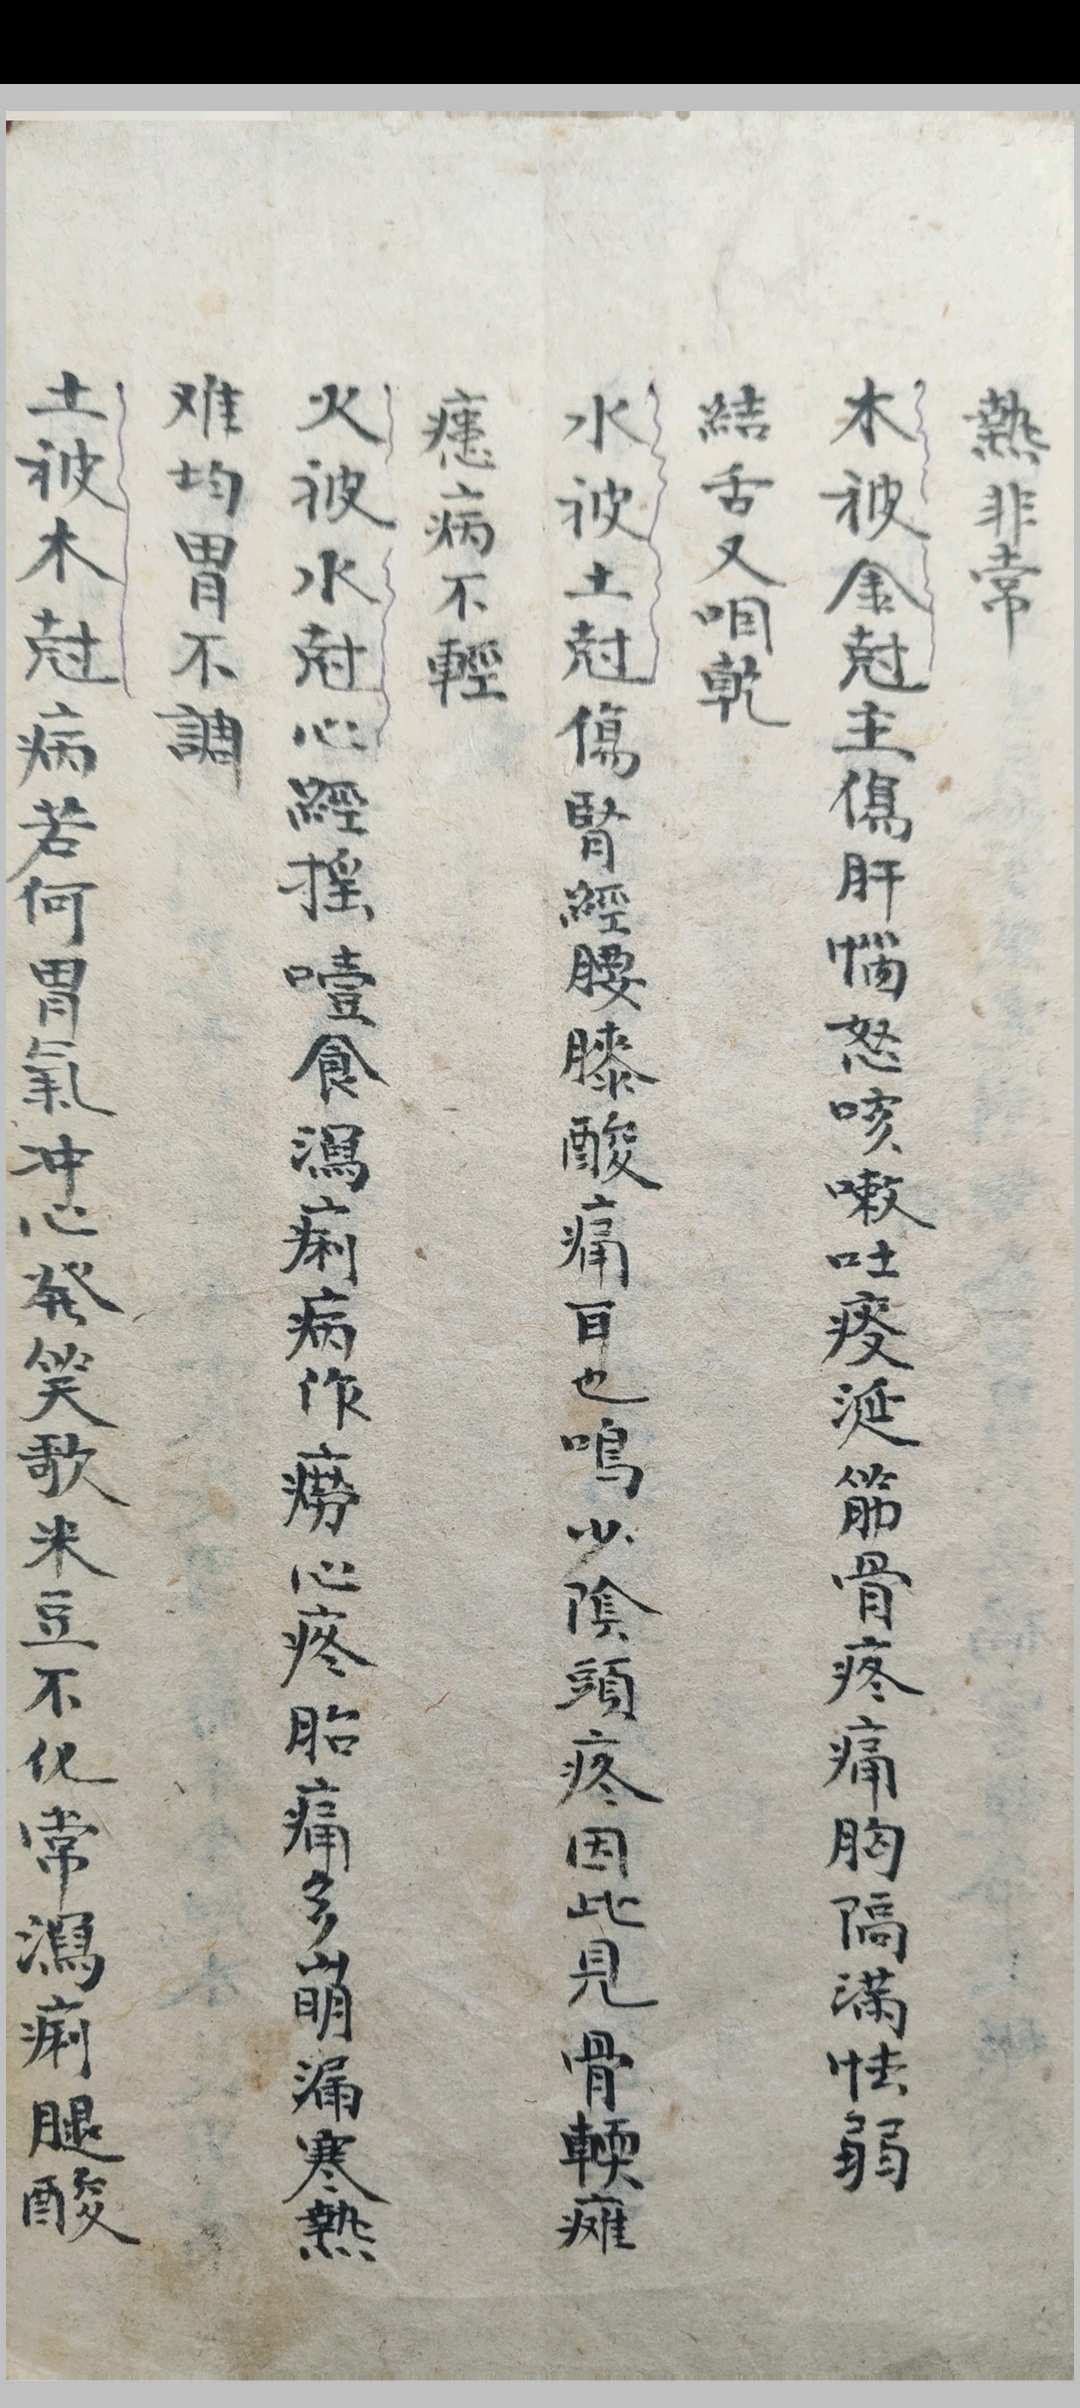 熱非常
木被金尅主傷肝惱怒咳嗽吐痰涎筋骨疼痛胸隔滿怯弱
結舌又咽乾
水被土尅傷腎經腰膝酸痛百也鳴少陰頭疼因此見骨輭癱
病不輕
火被水尅心經搖噎食瀉痢病作癆心疼胎痛多崩漏寒熱
难均胃不調
土被木尅病若何胃氣冲心發笑歌米豆不化常瀉痢腿酸